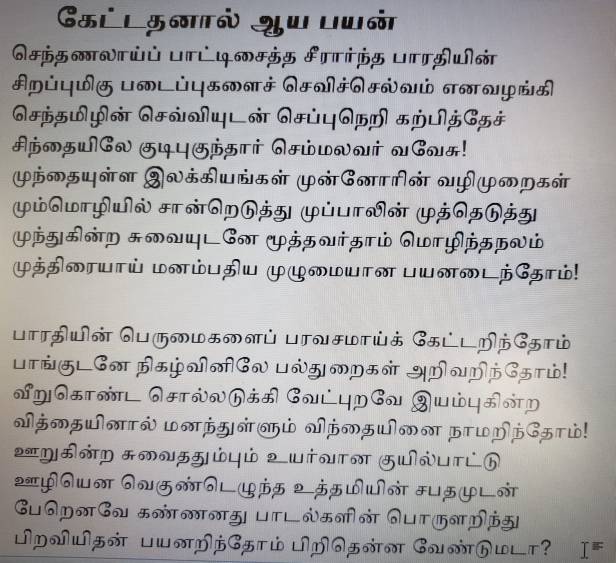 கேட்டதனால் ஆய பயன்
செந்தணலாய்ப் பாட்டிசைத்த சீரார்ந்த பாரதியின்
சிறப்புமிகு படைப்புகளைச் செவிச்செல்வம் எனவழங்கி
செந்தமிழின் செவ்வியுடன் செப்புநெறி கற்பித்தேச்
சிந்தையிலே குடிபுகுந்தார் செம்மலவர் வவேசு!
முந்தையுள்ள இலக்கியங்கள் முன்னோரின் வழிமுறைகள்
மும்மொழியில் சான்றெடுத்து முப்பாலின் முத்தெடுத்து
முந்துகின்ற சுவையுடனே மூத்தவர்தாம் மொழிந்தநலம்
முத்திரையாய் மனம்பதிய முழுமையான பயனடைந்தோம்!
பாரதியின் பெருமைகளைப் பரவசமாய்க் கேட்டறிந்தோம்
பாங்குடனே நிகழ்வினிலே பல்துறைகள் அறிவறிந்தோம்!
வீறுகொண்ட சொல்லடுக்கி வேட்புறவே இயம்புகின்ற
வித்தையினால் மனந்துள்ளும் விந்தையினை நாமறிந்தோம்!
ஊறுகின்ற சுவைததும்பும் உயர்வான குயில்பாட்டு
ஊழியென வெகுண்டெழுந்த உத்தமியின் சபதமுடன்
பேறெனவே கண்ணனது பாடல்களின் பொருளறிந்து
பிறவியிதன் பயனறிந்தோம் பிறிதென்ன வேண்டுமடா?